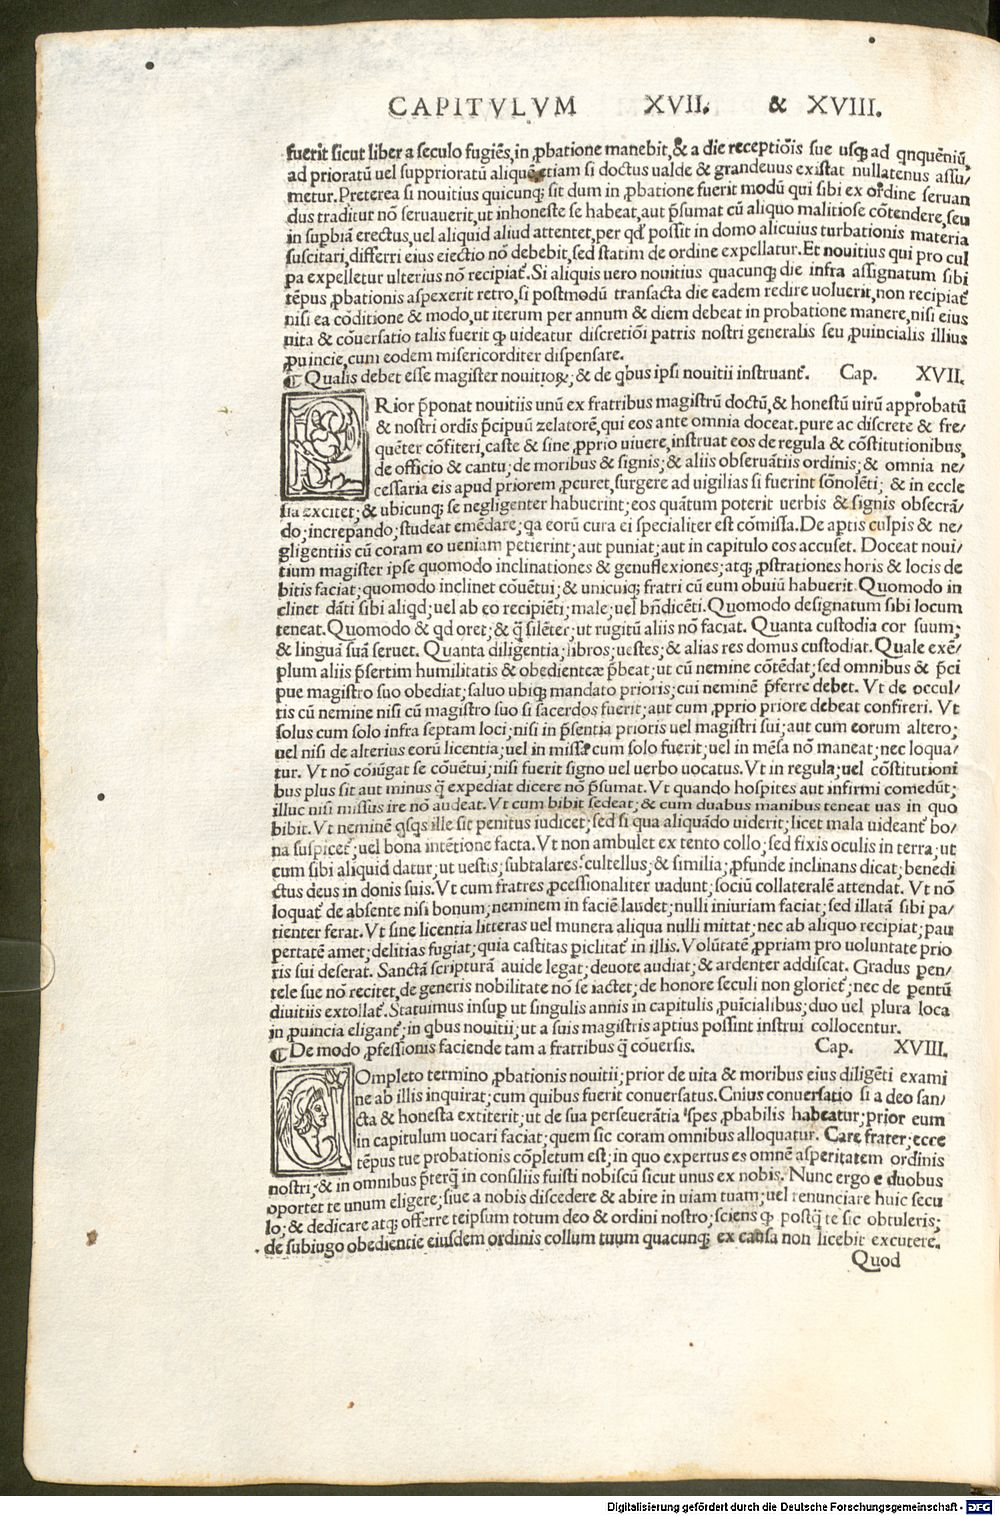 CAPITVLVM XVII. & XVIII.
fuerit sicut liber a seculo fugiẽs,in ꝓbatione manebit,& a die receptiõis sue usq; ad qnquẽniũ,
ad prioratũ uel supprioratũ aliquẽ etiam si doctus ualde & grandeuus existat nullatenus assu/
metur.Preterea si nouitius quicunq; sit dum in ꝓbatione fuerit modũ qui sibi ex ordine seruan
dus traditur nõ seruauerit,ut inhoneste se habeat,aut p̃sumat cũ aliquo malitiose cõtendere,seu
in supbiã erectus,uel aliquid aliud attentet,per qd' possit in domo alicuius turbationis materia
suscitari,differri eius eiectio nõ debebit,sed statim de ordine expellatur.Et nouitius qui pro cul
pa expelletur ulterius nõ recipiat᷑.Si aliquis uero nouitius quacunq; die infra assignatum sibi
tẽpus ꝓbationis aspexerit retro,si postmodũ transacta die eadem redire uoluerit,non recipiat᷑
nisi ea cõditione & modo,ut iterum per annum & diem debeat in probatione manere,nisi eius
uita & cõuersatio talis fuerit ꝙ uideatur discretiõi patris nostri generalis seu ꝓuincialis illius
ꝓuincie,cum eodem misericorditer dispensare.
¶ Qualis debet esse magister nouitioꝝ; & de qbus ipsi nouitii instruant᷑. Cap. XVII.
PRior p̃ponat nouitiis unũ ex fratribus magistrũ doctũ,& honestũ uirũ approbatũ
& nostri ordis p̃cipuũ zelatorẽ,qui eos ante omnia doceat.pure ac discrete & fre/
quẽter cõfiteri,caste & sine ꝓprio uiuere,instruat eos de regula & cõstitutionibus,
de officio & cantu; de moribus & signis; & aliis obseruãtiis ordinis; & omnia ne/
cessaria eis apud priorem ꝓcuret,surgere ad uigilias si fuerint sõnolẽti; & in eccle
sia excitet; & ubicunq; se negligenter habuerint; eos quãtum poterit uerbis & signis obsecrã/
do; increpando; studeat emẽdare; qa eorũ cura ei specialiter est cõmissa.De aptis culpis & ne/
gligentiis cũ coram eo ueniam petierint; aut puniat; aut in capitulo eos accuset. Doceat noui/
tium magister ipse quomodo inclinationes & genuflexiones; atq; ꝓstrationes horis & locis de
bitis faciat; quomodo inclinet cõuẽtui; & unicuiq; fratri cũ eum obuiũ habuerit. Quomodo in
clinet dãti sibi aliqd; uel ab eo recipiẽti; male; uel bñdicẽti. Quomodo designatum sibi locum
teneat. Quomodo & qd oret; & q̃ silẽter; ut rugitũ aliis nõ faciat. Quanta custodia cor suum;
& linguã suã seruet. Quanta diligentia; libros; uestes; & alias res domus custodiat. Quale exẽ/
plum aliis p̃sertim humilitatis & obedienteæ p̃beat; ut cũ nemine cõtẽdat; sed omnibus & p̃ci
pue magistro suo obediat; saluo ubiq; mandato prioris; cui neminẽ p̃ferre debet. Vt de occul/
tis cũ nemine nisi cũ magistro suo si sacerdos fuerit; aut cum ꝓprio priore debeat confiteri. Vt
solus cum solo infra septam loci; nisi in p̃sentia prioris uel magistri sui; aut cum eorum altero;
uel nisi de alterius eorũ licentia; uel in missa cum solo fuerit; uel in mẽsa nõ maneat; nec loqua/
tur. Vt nõ cõiũgat se cõuẽtui; nisi fuerit signo uel uerbo uocatus. Vt in regula; uel cõstitutioni
bus plus sit aut minus q̃ expediat dicere nõ p̃sumat. Vt quando hospites aut infirmi comedũt;
illuc nisi missus ire nõ audeat. Vt cum bibit sedeat; & cum duabus manibus teneat uas in quo
bibit. Vt neminẽ qsqs ille sit penitus iudicet; sed si qua aliquãdo uiderit; licet mala uideant᷑ bo/
na suspicet᷑; uel bona intẽtione facta. Vt non ambulet ex tento collo; sed fixis oculis in terra; ut
cum sibi aliquid datur; ut uestis; subtalares; cultellus; & similia; ꝓfunde inclinans dicat; benedi
ctus deus in donis suis. Vt cum fratres ꝓcessionaliter uadunt; sociũ collateralẽ attendat. Vt nõ
loquat᷑ de absente nisi bonum; neminem in faciẽ laudet; nulli iniuriam faciat; sed illatã sibi pa/
tienter ferat. Vt sine licentia litteras uel munera aliqua nulli mittat; nec ab aliquo recipiat; pau
pertatẽ amet; delitias fugiat; quia castitas piclitat᷑ in illis. Volũtatẽ ꝓpriam pro uoluntate prio
ris sui deserat. Sanctã scripturã auide legat; deuote audiat; & ardenter addiscat. Gradus pen/
tele sue nõ recitet,de generis nobilitate nõ se iactet; de honore seculi non gloriet᷑; nec de pentũ
diuitiis extollat᷑. Statuimus insup ut singulis annis in capitulis ꝓuĩcialibus; duo uel plura loca
in ꝓuincia eligant᷑; in qbus nouitii; ut a suis magistris aptius possint instrui collocentur.
¶ De modo ꝓfessionis faciende tam a fratribus q̃ cõuersis. Cap. XVIII.
COmpleto termino ꝓbationis nouitii; prior de uita & moribus eius diligẽti exami
ne ab illis inquirat; cum quibus fuerit conuersatus. Cuius conuersatio si a deo san/
cta & honesta extiterit; ut de sua perseuerãtia spes ꝓbabilis habeatur; prior eum
in capitulum uocari faciat; quem sic coram omnibus alloquatur. Care frater; ecce
tẽpus tue probationis cõpletum est; in quo expertus es omnẽ asperitatem ordinis
nostri; & in omnibus p̃terq̃ in consiliis fuisti nobiscũ sicut unus ex nobis. Nunc ergo e duobus
oportet te unum eligere; siue a nobis discedere & abire in uiam tuam; uel renunciare huic secu
lo; & dedicare atq; offerre teipsum totum deo & ordini nostro; sciens ꝙ postq̃ te sic obtuleris;
de subiugo obedientie eiusdem ordinis collum tuum quacunq; ex causa non licebit excutere.
Quod
Digitalisierung gefördert durch die Deutsche Forschungsgemeinschaft - DFG